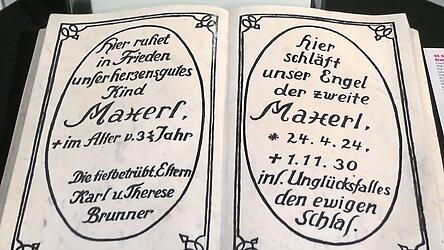 hier ruhet
in Frieden
unser herzensgutes
Kind
Maxerl,
+ im Alter v. 3½ Jahr
Die tiefbetrübt. Eltern
Karl u. Therese
Brunner
hier
schläft
unser Engel
der zweite
Maxerl,
* 24. 4. 24,
+ 1. 11. 30
inf. Unglücksfalles
den ewigen
Schlaf.